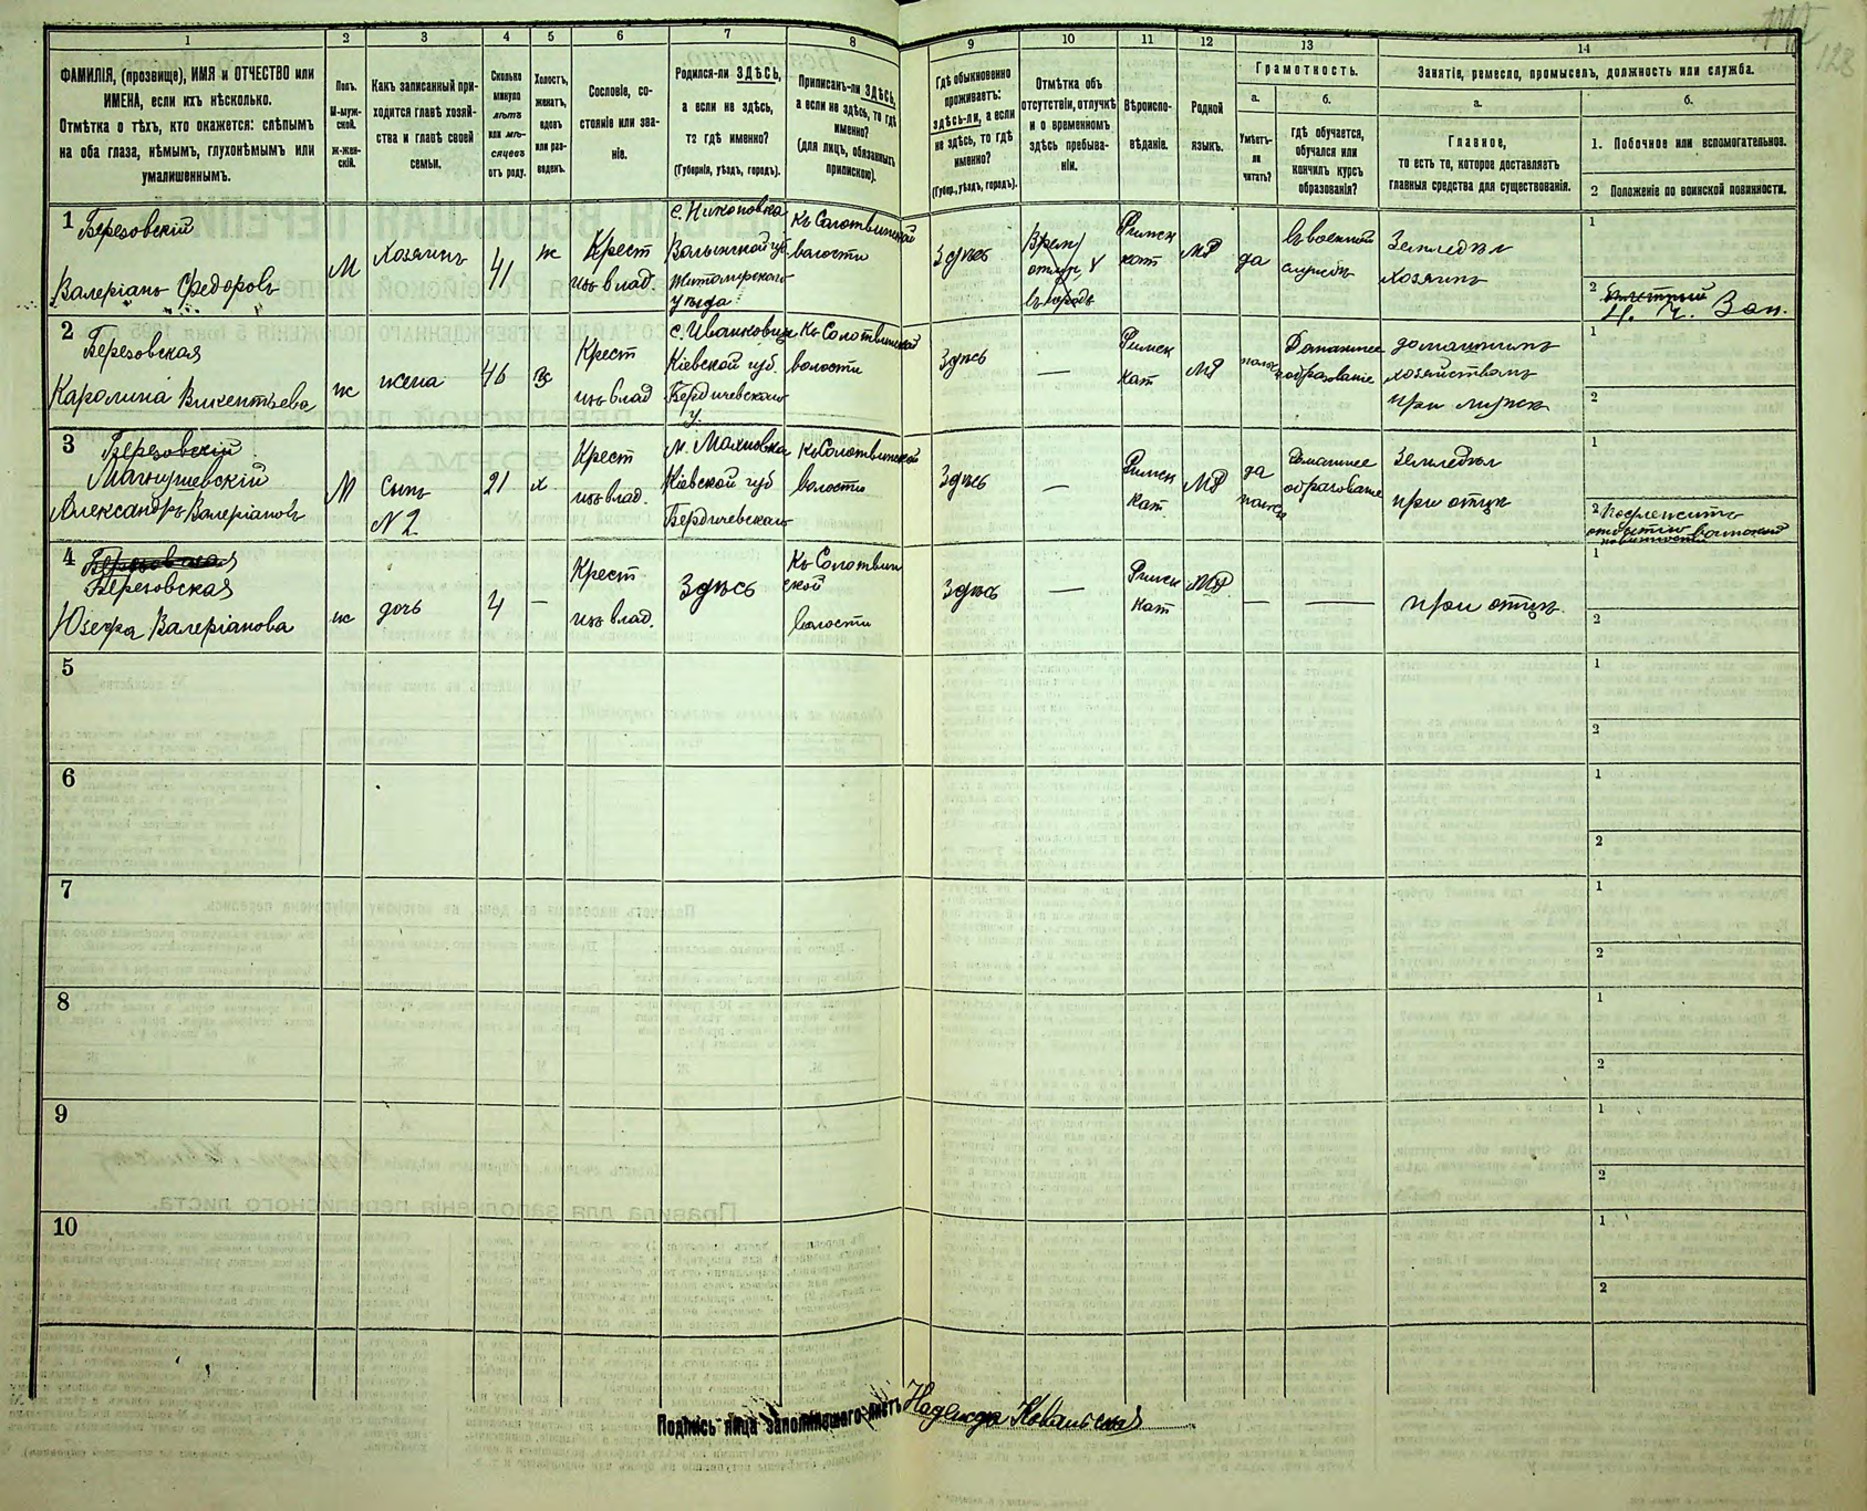 128
1
2
3
4
5
6
7
8
9
10
11
12
13
14
ФАМИЛІЯ, (прозвище), ИМЯ и ОТЧЕСТВО или
ИМЕНА, если ихъ нѣсколько.
Отмѣтка о тѣхъ, кто окажется: слѣпымъ
на оба глаза, нѣмымъ, глухонѣмымъ или
умалишеннымъ.
Полъ.
М-муж-
ской.
Ж-жен-
скій.
Какъ записанный при-
ходится главѣ хозяй-
ства и главѣ своей
семьи.
Сколько
минуло
лѣтъ
или мѣ-
сяцевъ
отъ роду.
Холостъ,
женатъ,
вдовъ
или раз-
веденъ.
Сословіе, со-
стояніе или зва-
ніе.
Родился-ли ЗДѢСЬ,
а если не здѣсь,
то гдѣ именно?
(Губернія, уѣздъ, городъ).
Приписанъ-ли ЗДѢСЬ,
а если не здѣсь, то гдѣ
именно?
(для лицъ, обязанныхъ
припискою).
Гдѣ обыкновенно
проживаетъ:
здѣсь-ли, а если
не здѣсь, то гдѣ
именно?
(Губер., уѣздъ, городъ).
Отмѣтка объ
отсутствіи, отлучкѣ
и о временномъ
здѣсь пребыва-
ніи.
Вѣроиспо-
вѣданіе.
Родной
языкъ.
Грамотность.
а.
Умѣетъ-
ли
читать?
б.
гдѣ обучается,
обучался или
кончилъ курсъ
образованія?
Занятіе, ремесло, промыселъ, должность или служба.
а.
Главное,
то есть то, которое доставляетъ
главныя средства для существованія.
б.
1. Побочное или вспомогательное.
2 Положеніе по воинской повинности.
1 Березовскій
Валеріанъ Федоровъ
М
Хозяинъ
41
ж
Крест
изъ влад.
с. Никоновка
Волынской губ
Житомирского
уѣзда
Къ Солотвинской
волости
Здѣсь
Врем
отлуч
въ городъ
Римск
кат
да
Въ военной
службѣ
Земледѣл
хозяинъ
1
2
Зап.
2
Березовская
Каролина Викентьева
ж
жена
46
Крест
изъ влад
с. Иванковцы
Кіевской губ.
Бердичевского
у.
Къ Солотвинской
волости
Здѣсь
—
Римск
кат
Домашнее
образованіе
домашнимъ
хозяйствомъ
при мужѣ
1
2
3 Березовскій
Александръ Валеріановъ
М
Сынъ
№ 2
21
х
Крест
изъ влад.
м. Махновка
Кіевской губ
Бердичевского
Къ Солотвинской
волости
Здѣсь
—
Римск
кат.
да
Домашнее
образованіе
Земледѣл
при отцѣ
1
2
4 Березовская
Березовская
Юзефа Валеріанова
ж
дочь
4
—
Крест
изъ влад.
Здѣсь
Къ Солотвин
ской
волости
Здѣсь
—
Римск
кат
—
—
при отцѣ.
1
2
5
1
2
6
1
2
7
1
2
8
1
2
9
1
2
10
1
2
Подпись лица заполнявшего листъ Надежда